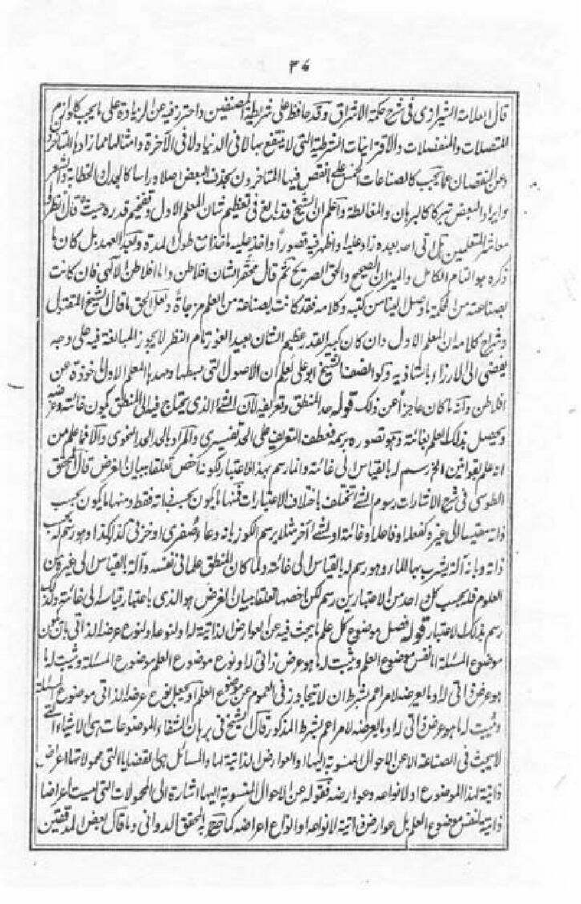 ٣٤
قال العلامة الشيرازي في شرح حكمة الاشراق وقد حافظ على شريطة المصنفين واحترز فيه عن الزيادة على ما يجب كلوازم
المتصلات والمنفصلات والاقترانيات الشرطية التي لا ينتفع بها لا في الدنيا ولا في الآخرة وامثالها مما زاد المتأخرون
وعن النقصان عما يجب كالصناعات الخمس التي نقص فيها المتاخرون بحذف البعض اصلا وراسا كالجدل والخطابة والشعر
وايراد البعض تبركا كالبرهان والمغالطة واعلم ان الشيخ قد بالغ في تعظيم شان المعلم الاول وتفخيم قدره حيث قال انظروا
معاشر المتعلمين هل اتى احد بعده زاد عليه او اظهر فيه قصورا او اخذ عليه ماخذا مع طول المدة وبعد العهد بل كان ما
ذكره هو التام الكامل والميزان الصحيح والحق الصريح ثم قال محقرا لشان افلاطن واما افلاطن الالهي فان كانت
بضاعته من الحكمة ما وصل الينا من كتبه وكلامه فقد كانت بضاعته من العلم مزجاة ولعل الحق ما قال الشيخ المقتول
وشراح كلامه ان المعلم الاول وان كان كبير القدر عظيم الشان بعيد الغور تام النظر لا يجوز المبالغة فيه على وجه
يفضي الى الازراء باستاذيه ولو انصف الشيخ ابو علي لعلم ان الاصول التي بسطها وهذبها المعلم الاول ماخوذة عن
افلاطن وانه ما كان عاجزا عن ذلك قوله حد المنطق وتعريفه لان الشئ الذي يحتاج فيه الى المنطق يكون غايته وغرضه
ويحصل بذلك العلم بغايته وهو تصوره برسمه فعطف التعريف على الحد تفسيري والمراد بالحد الحد النحوي والا فما علم من
انه علم بقوانين الخ رسم له بالقياس الى غايته وانما رسم بهذا الاعتبار لكونه اخص لتعلقه ببيان الغرض قال المحقق
الطوسي في شرح الاشارات رسوم الشئ تختلف باختلاف الاعتبارات فمنها ما يكون بحسب ذاته فقط ومنها ما يكون بحسب
ذاته مقيسا الى غيره كفعله او فاعله او غايته او شئ آخر مثلا يرسم الكوز بانه وعاء صفري او خزفي كذا كذا وهو رسم له بحسب
ذاته وبانه آلة يشرب بها الماء وهو رسم له بالقياس الى غايته ولما كان المنطق علما في نفسه وآلة بالقياس الى غيره من
العلوم فله بحسب كل واحد من الاعتبارين رسم لكن اخصها تعلقا ببيان الغرض هو الذي باعتبار قياسه الى غايته ولذا
رسم بذلك الاعتبار قوله فصل موضوع كل علم ما يبحث فيه عن العوارض الذاتية له او لنوعه او لنوع عرضه الذاتي بان يكون
موضوع المسئلة اما نفس موضوع العلم ويثبت له ما هو عرض ذاتي له او نوع موضوع العلم موضوع المسئلة ويثبت له ما
هو عرض ذاتي له او ما يعرضه لامر اعم بشرط ان لا يتجاوز في العموم عن موضوع العلم او يجعل نوع عرضه الذاتي موضوع المسئلة
ويثبت له ما هو عرض ذاتي له او ما يعرضه لامر اعم بالشرط المذكور قال الشيخ في برهان الشفاء الموضوعات هي الاشياء التي
لا يبحث في الصناعة الا عن الاحوال المنسوبة اليها والعوارض الذاتية لها والمسائل هي القضايا التي محمولاتها اعراض
ذاتية لهذا الموضوع او لانواعه وعوارضه فقوله عن الاحوال المنسوبة اليها اشارة الى المحمولات التي ليست اعراضا
ذاتية لنفس موضوع العلم بل عوارض ذاتية لانواعه او انواع اعراضه كما صرح به المحقق الدواني وما قال بعض المدققين